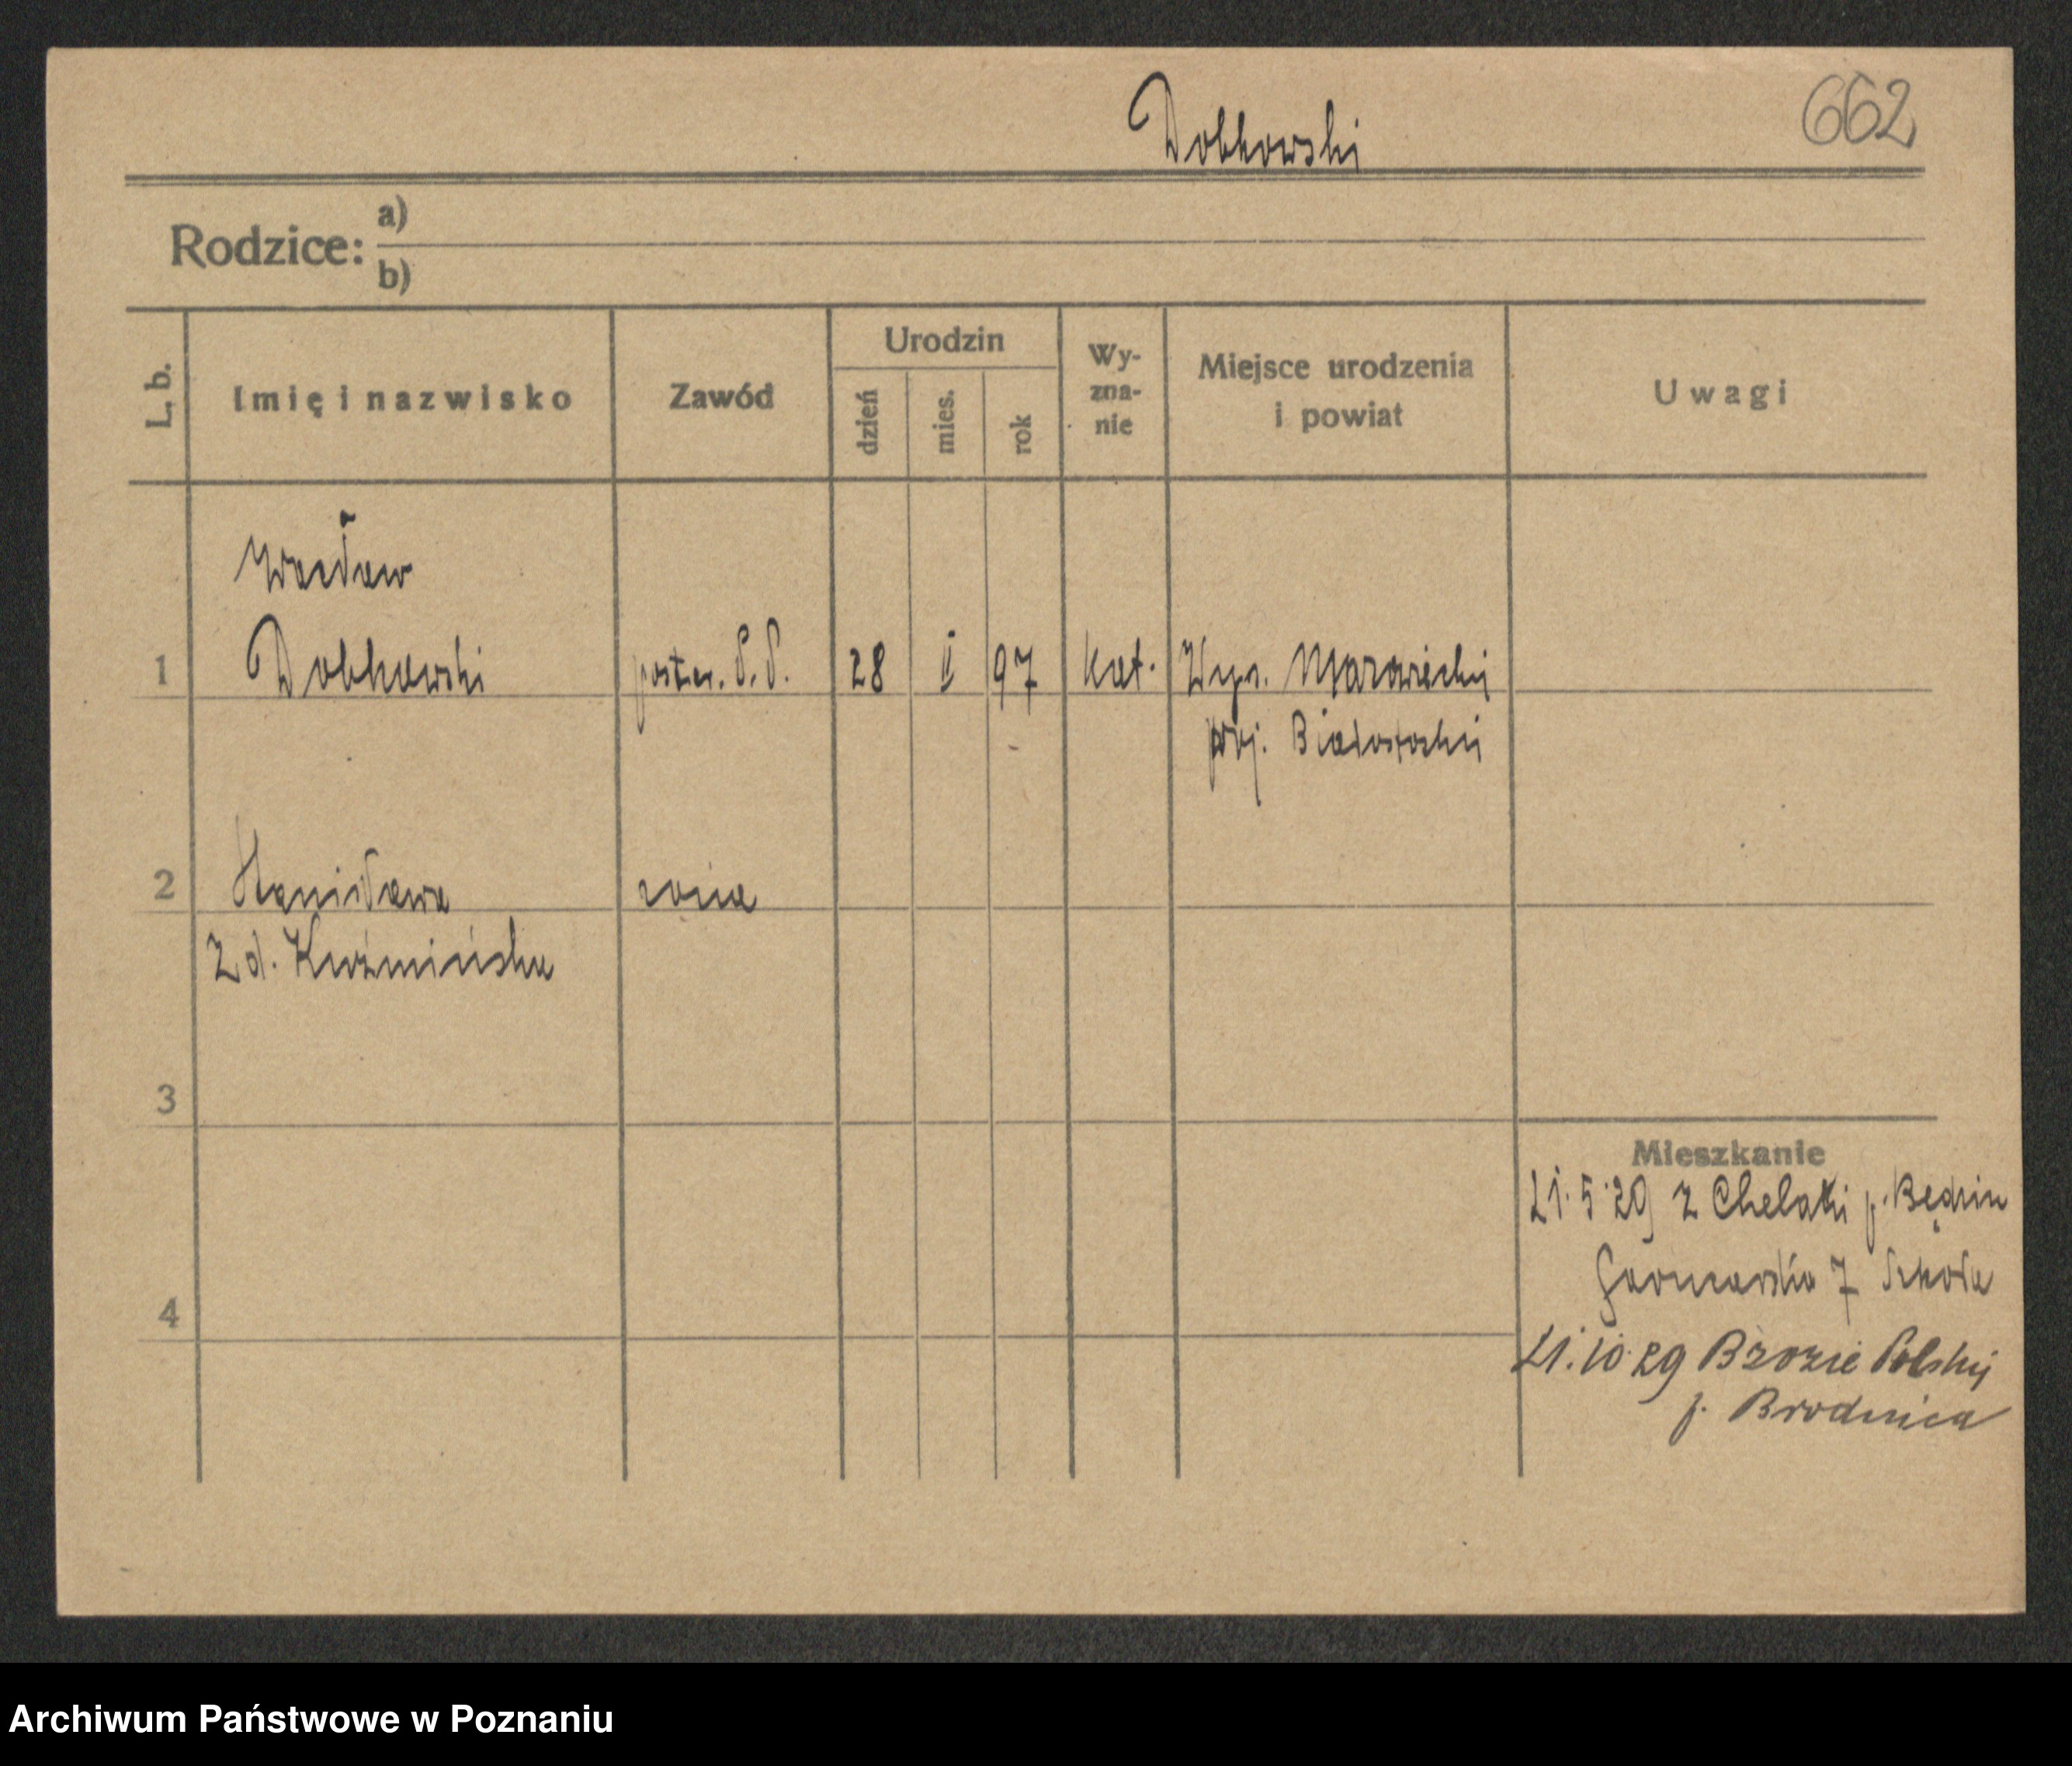 Dobkowski
662
Rodzice: a)
b)
L. b.
Imię i nazwisko
Zawód
Urodzin
dzień
mies.
rok
Wy-
zna-
nie
Miejsce urodzenia
i powiat
Uwagi
Wacław
1 Dobkowski poster. P.P. 28 II 97 kat. Wys. Mazowiecki
Białostocki
2 Stanisława żona
z d. Kuźmińska
3
Mieszkanie
21.5.29 z p. Będzin
7 Szkoła
4
21.10.29 Brozie Polskij
p. Brodnica
Archiwum Państwowe w Poznaniu